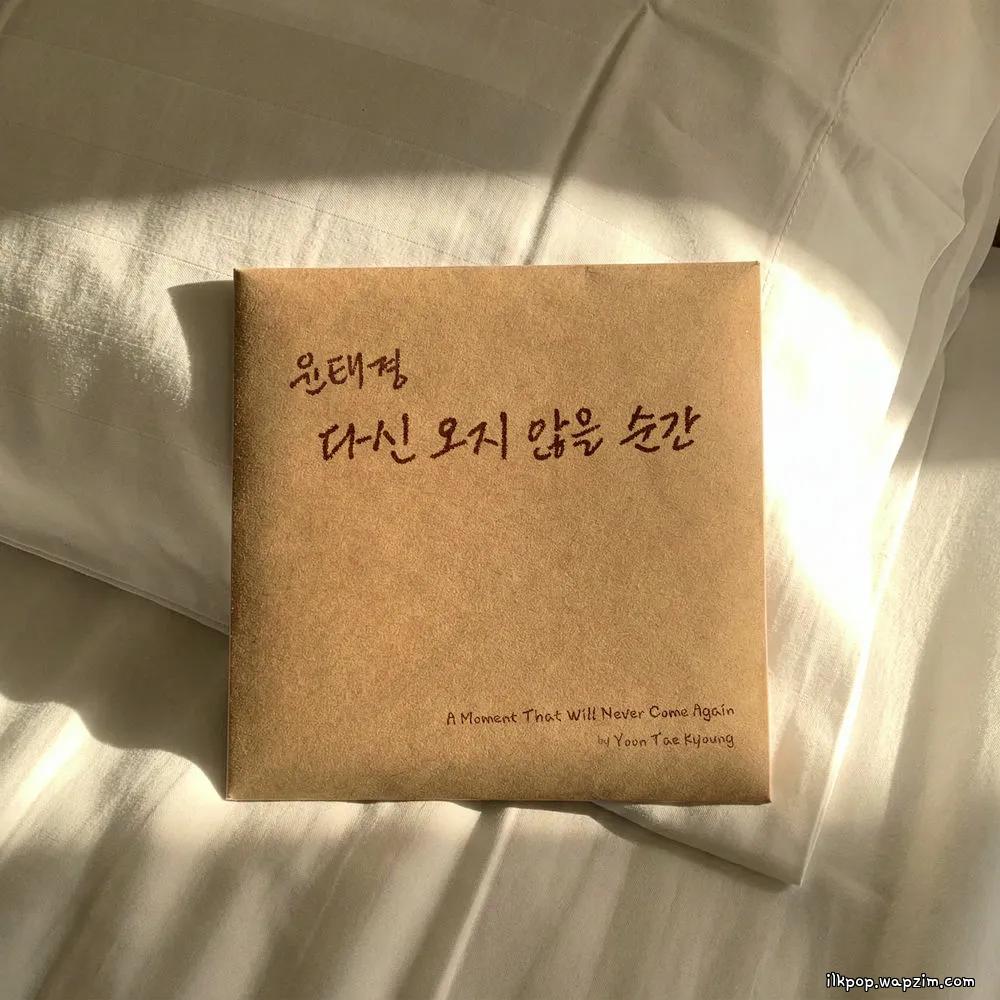 윤태경
다신 오지 않을 순간
A Moment That Will Never Come Again
by Yoon Tae Kyoung
ilkpop.wapzim.com